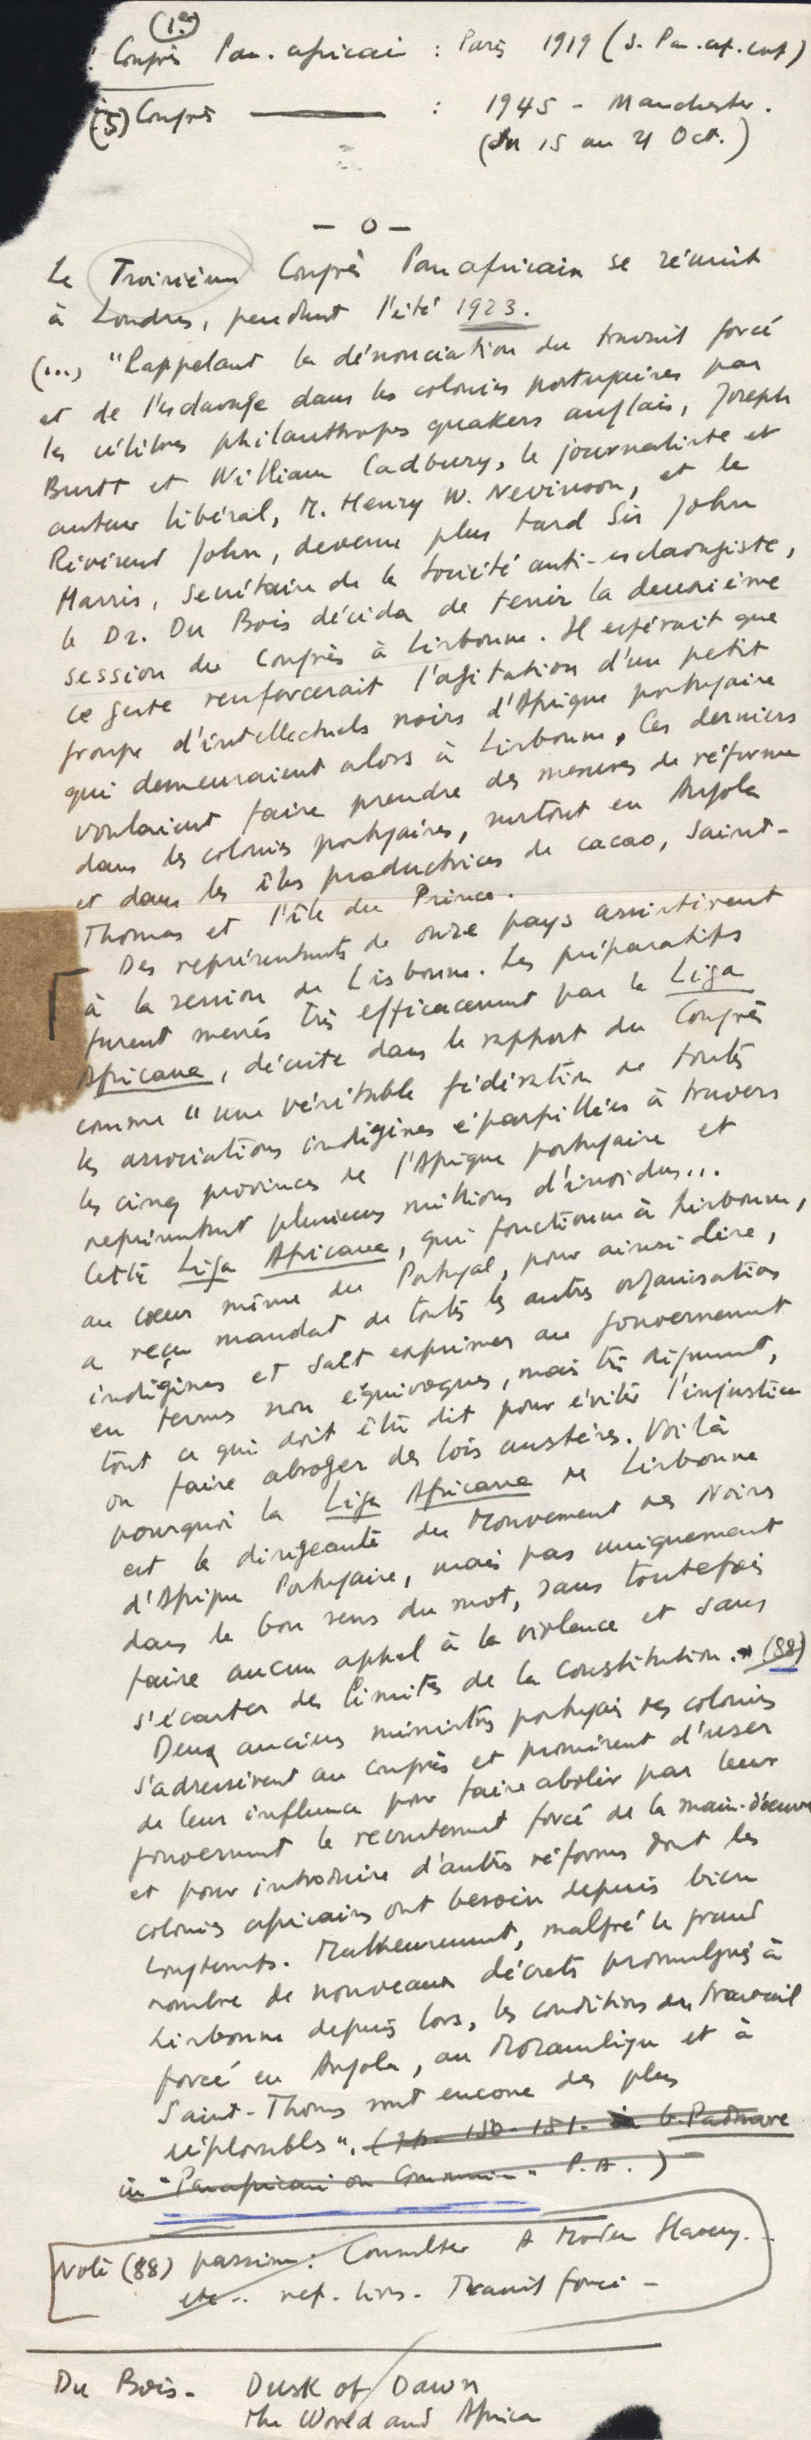 (1er)
Congrès Pan. africain : Paris 1919 (S. Pan. af. cont)
(5) Congrès ——— : 1945 - Manchester.
(du 15 au 21 Oct.)
- o -
Le Troisième Congrès Panafricain se réunit
à Londres, pendant l'été 1923.
(...) "Rappelant la dénonciation du travail forcé
et de l'esclavage dans les colonies portugaises par
les célèbres philanthropes quakers anglais, Joseph
Burtt et William Cadbury, le journaliste et
auteur libéral, M. Henry W. Nevinson, et le
Révérend John, devenu plus tard Sir John
Harris, secrétaire de la Société anti-esclavagiste,
le Dr. Du Bois décida de tenir la deuxième
session du Congrès à Lisbonne. Il espérait que
ce geste renforcerait l'agitation d'un petit
groupe d'intellectuels noirs d'Afrique portugaise
qui demeuraient alors à Lisbonne. Ces derniers
voulaient faire prendre des mesures de réforme
dans les colonies portugaises, surtout en Angola
et dans les îles productrices de cacao, Saint-
Thomas et l'île du Prince.
Des représentants de onze pays assistèrent
à la session de Lisbonne. Les préparatifs
furent menés très efficacement par la Liga
Africana, décrite dans le rapport du Congrès
comme "une véritable fédération de toutes
les associations indigènes éparpillées à travers
les cinq provinces de l'Afrique portugaise et
représentant plusieurs millions d'individus...
Cette Liga Africana, qui fonctionne à Lisbonne,
au cœur même du Portugal, pour ainsi dire,
a reçu mandat de toutes les autres organisations
indigènes et sait exprimer au gouvernement
en termes non équivoques, mais très dignement,
tout ce qui doit être dit pour éviter l'injustice
ou faire abroger des lois austères. Voilà
pourquoi la Liga Africana de Lisbonne
est la dirigeante du Mouvement des Noirs
d'Afrique Portugaise, mais pas uniquement
dans le bon sens du mot, sans toutefois
faire aucun appel à la violence et sans
s'écarter des limites de la Constitution." (88)
Deux anciens ministres portugais des colonies
s'adressèrent au congrès et promirent d'user
de leur influence pour faire abolir par leur
gouvernement le recrutement forcé de la main-d'œuvre
et pour introduire d'autres réformes dont les
colonies africaines ont besoin depuis bien
longtemps. Malheureusement, malgré le grand
nombre de nouveaux décrets promulgués à
Lisbonne depuis lors, les conditions du travail
forcé en Angola, au Mozambique et à
Saint-Thomas sont encore des plus
déplorables". (pp. 130-131. in G. Padmore
in "Panafricani ou Commun." P.A.)
Note (88) passim: Consulter A Modern Slavery...
etc.. ref. livs. Travail forcé -
Du Bois - Dusk of Dawn
The World and Africa